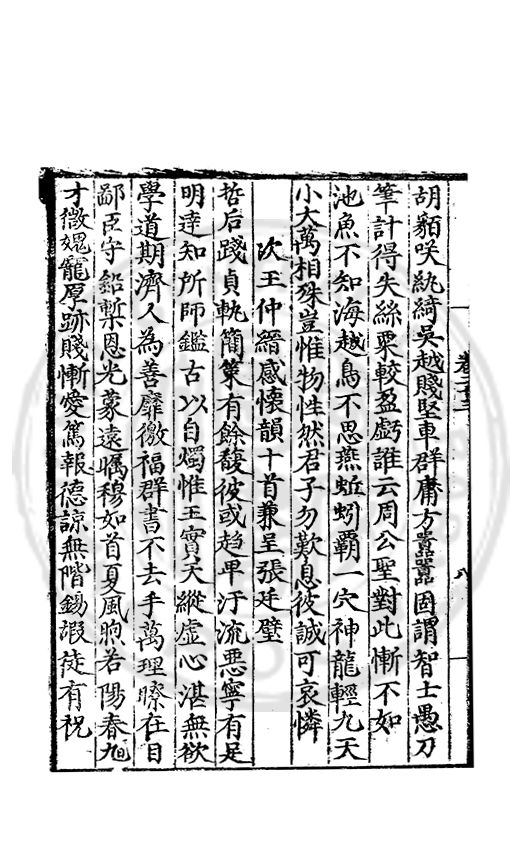 胡貂咲紈綺吳越賤堅車群庸方囂囂固謂智士愚刀
筆計得失絲粟較盈虧誰云周公聖對此慚不如
池魚不知海越鳥不思燕蚯蚓霸一穴神龍輕九天
小大萬相殊豈惟物性然君子勿歎息彼誠可哀憐
次王仲縉感懷韻十首兼呈張廷璧
哲后踐貞軌簡策有餘馥彼或趍卑汙流惡寧有足
明逹知所師鑑古以自燭惟王實天縱虛心湛無欲
學道期濟人為善靡徼福群書不去手萬理瞭在目
鄙臣守鉛槧恩光蒙遠矚穆如首夏風煦若陽春旭
才微媿寵厚跡賤慚愛篤報德諒無階錫嘏徒有祝
八